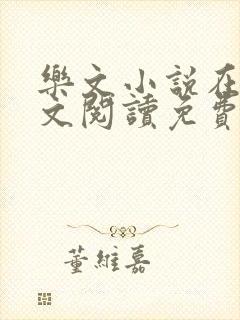 樂文小說在
文閱讀免費
董維嘉